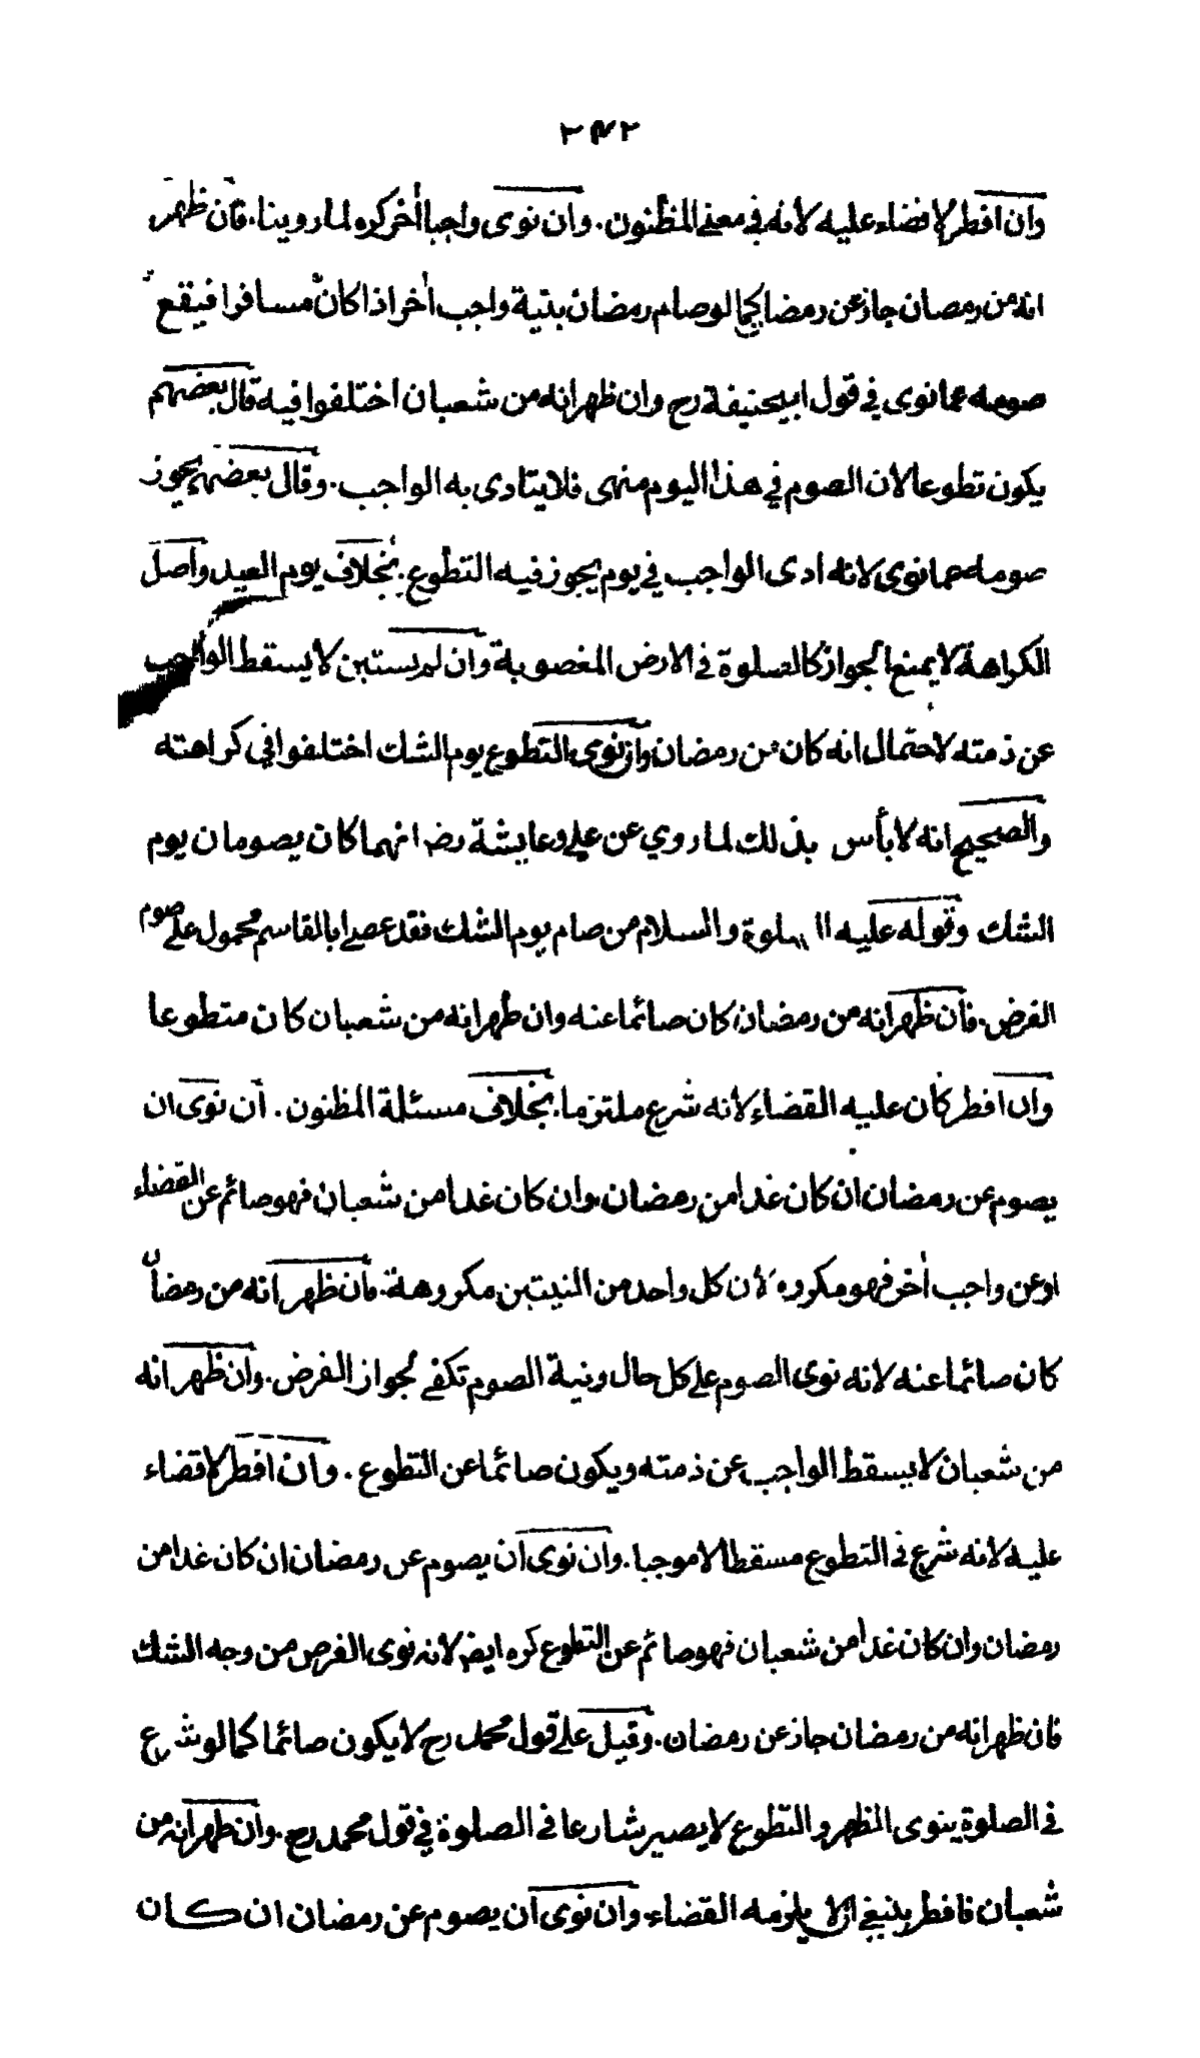 ٢٤٢
وان افطر لاقضاء عليه لانه في معنى المظنون. وان نوى واجبا أخر كره لما روينا. فان ظهر
انه من رمضان جاز عن رمضان كما لو صام رمضان بنية واجب أخر اذا كان مسافرا فيقع
صومه عما نوى في قول ابيحنيفة رح وان ظهر انه من شعبان اختلفوا فيه قال بعضهم
يكون تطوعا لان الصوم في هذا اليوم منهى فلا يتادى به الواجب. وقال بعضهم يجوز
صومه عما نوى لانه ادى الواجب في يوم يجوز فيه التطوع. بخلاف يوم العيد واصل
الكراهة لا يمنع الجواز كالصلوة في الارض المغصوبة وان لم يستبن لا يسقط الواجب
عن ذمته لاحتمال انه كان من رمضان وان نوى التطوع يوم الشك اختلفوا في كراهته
والصحيح انه لا بأس بذلك لما روي عن علي وعايشة رضـ انهما كان يصومان يوم
الشك وقوله عليه الصلوة والسلام من صام يوم الشك فقد عصى ابا القاسم محمول على صوم
الفرض. فان ظهر انه من رمضان كان صائما عنه وان ظهر انه من شعبان كان متطوعا
وان افطر كان عليه القضاء لانه شرع ملتزما. بخلاف مسئلة المظنون. ان نوى ان
يصوم عن رمضان ان كان غدا من رمضان وان كان غدا من شعبان فهو صائم عن القضاء
او عن واجب أخر فهو مكروه لأن كل واحد من النيتين مكروهة. فان ظهر انه من رمضان
كان صائما عنه لانه نوى الصوم على كل حال ونية الصوم تكفى لجواز الفرض. وان ظهر انه
من شعبان لا يسقط الواجب عن ذمته ويكون صائما عن التطوع. وان افطر لا قضاء
عليه لانه شرع في التطوع مسقطا لا موجبا. وان نوى ان يصوم عن رمضان ان كان غدا من
رمضان وان كان غدا من شعبان فهو صائم عن التطوع كره ايضـ لانه نوى الفرض من وجه الشك
فان ظهر انه من رمضان جاز عن رمضان. وقيل على قول محمد رح لا يكون صائما كما لو شرع
في الصلوة ينوى الظهر والتطوع لا يصير شارعا في الصلوة في قول محمد رح. وان ظهر انه من
شعبان فافطر ينبغي ان لا يلزمه القضاء. وان نوى ان يصوم عن رمضان ان كان